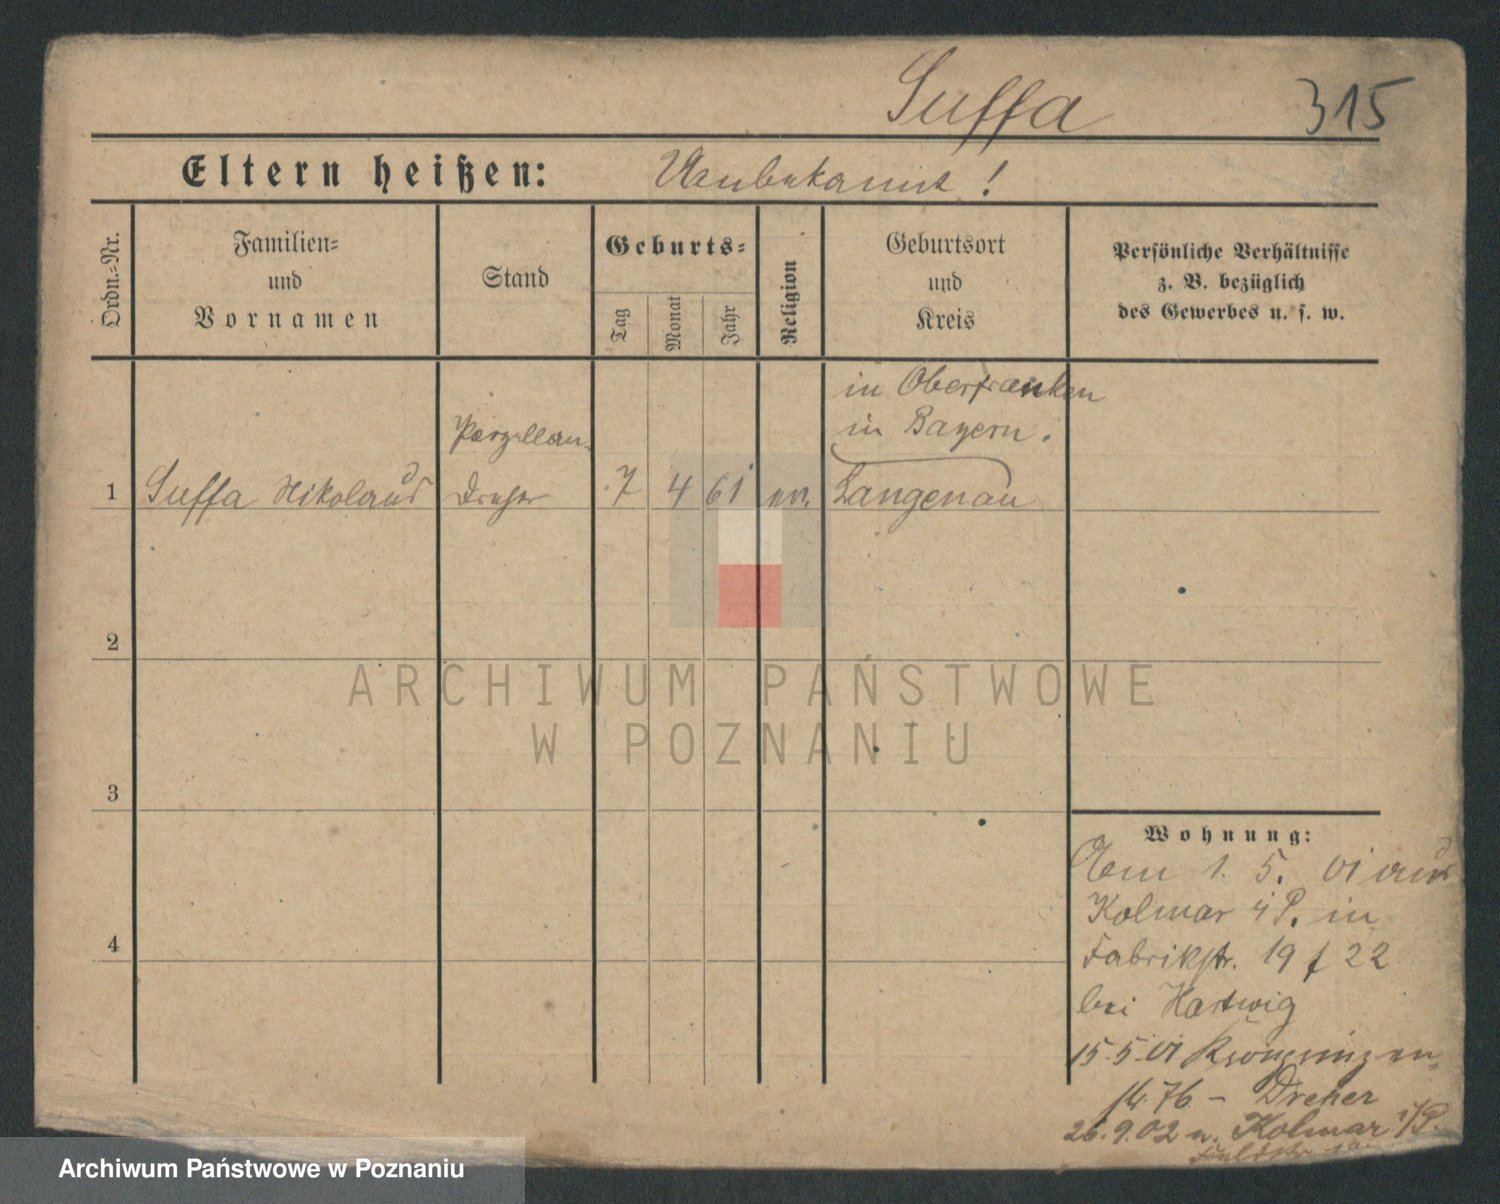 Suffa 315
Eltern heißen: Unbekannt!
Ordn.-Nr.
Familien-
und
Vornamen
Stand
Geburts-
Tag
Monat
Jahr
Religion
Geburtsort
und
Kreis
Persönliche Verhältnisse
z. B. bezüglich
des Gewerbes u. s. w.
in Oberfranken
in Bayern.
Porzellan-
1 Suffa Nikolaus Dreher 7 4 61 ev. Langenau
2
ARCHIWUM PAŃSTWOWE
W POZNANIU
3
Wohnung:
Am 1. 5. 01 aus
Kolmar i P. in
4
Fabrikstr. 19 f 22
bei Hartwig
15.5.01 Kronprinzen-
str. 76 - Dreher
26.9.02 n. Kolmar i/P.
Archiwum Państwowe w Poznaniu